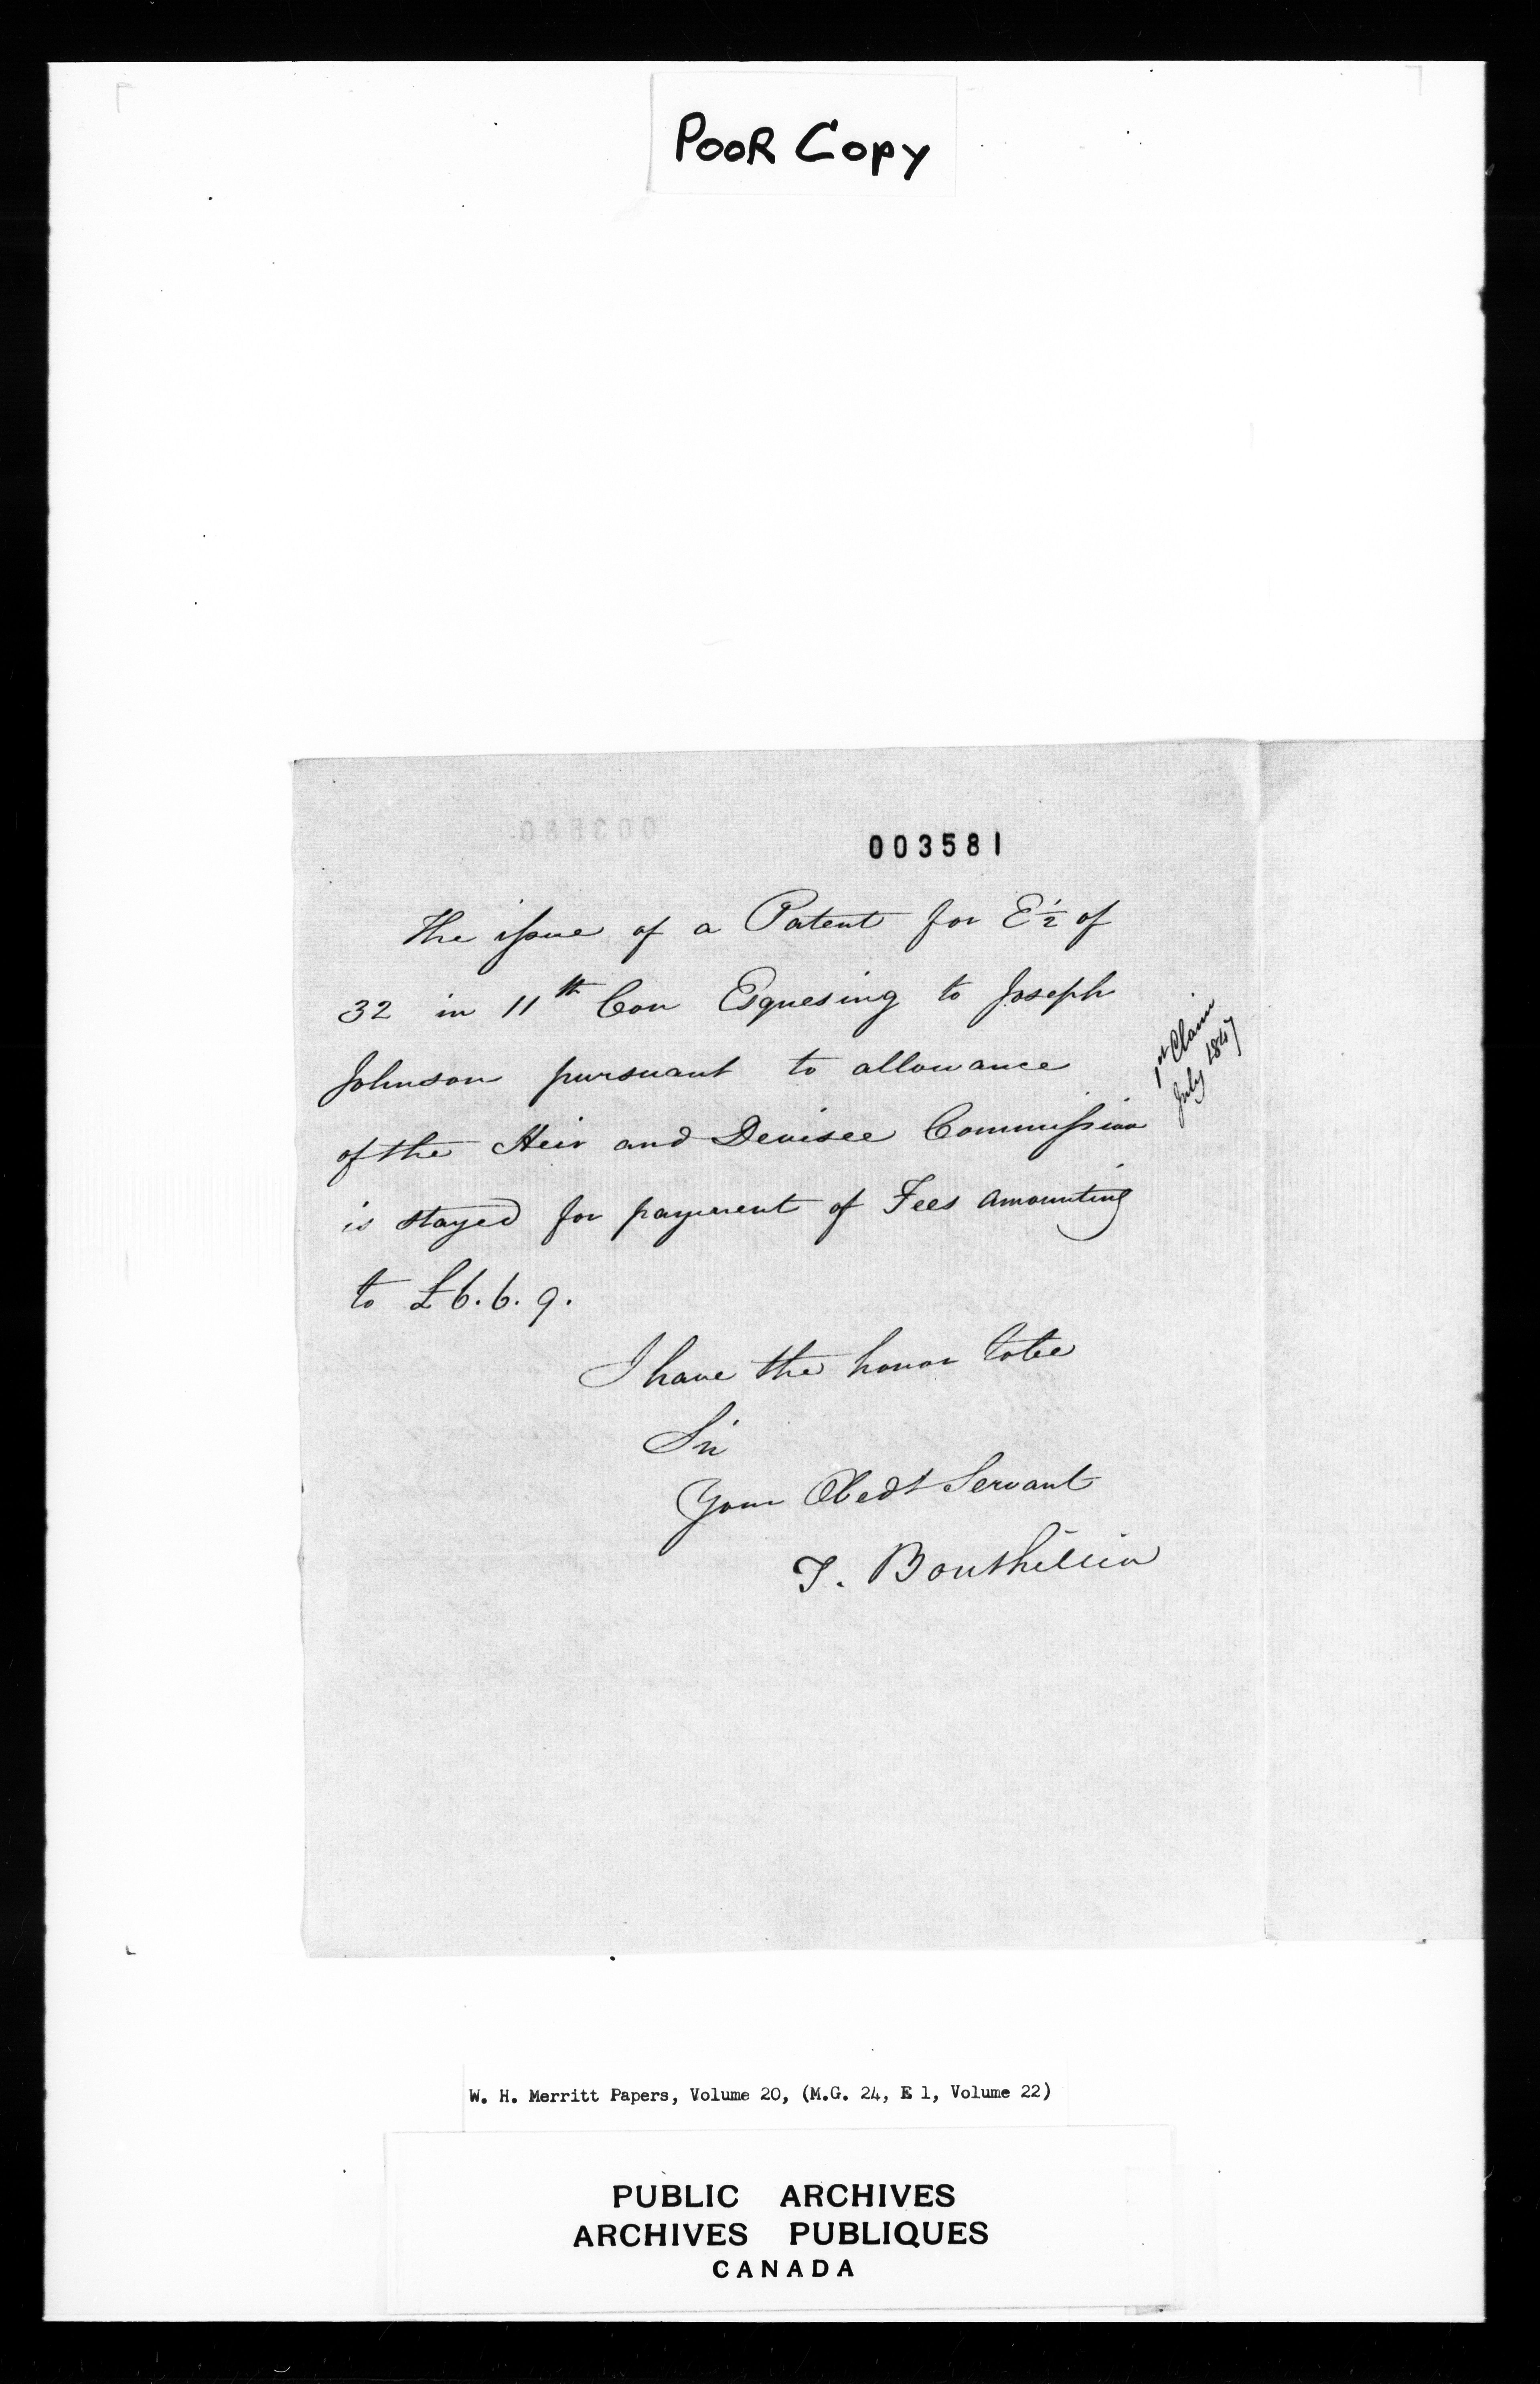 POOR COPY
003581
The issue of a Patent for E ½ of
32 in 11th Con Esquesing to Joseph
Johnson pursuant to allowance
1st Claim
July 1847
of the Heir and Devisee Commission
is stayed for payment of Fees amounting
to £6.6.9.
I have the honor to be
Sir
Your Obedt Servant
T. Bouthillier
W. H. Merritt Papers, Volume 20, (M.G. 24, E 1, Volume 22)
PUBLIC ARCHIVES
ARCHIVES PUBLIQUES
CANADA